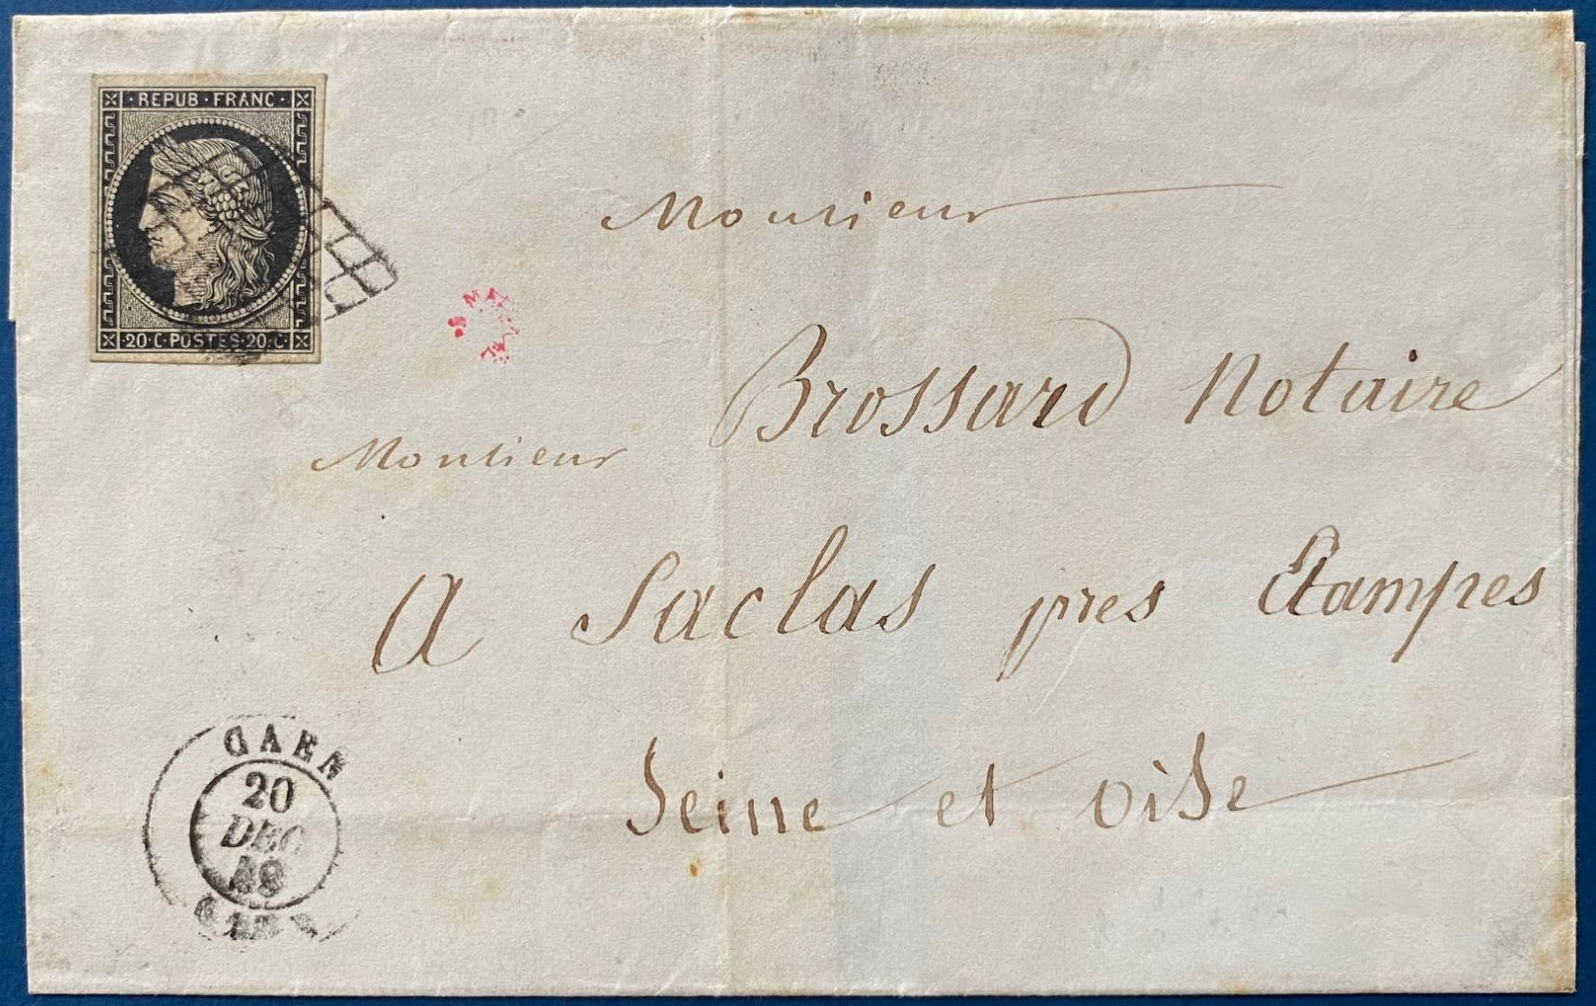 · REPUB · FRANC ·
· 20 · C · POSTES · 20 · C ·
Monsieur
Brossard Notaire
Monsieur
A Saclas pres Etampes
Seine et oise
CAEN
20
DEC